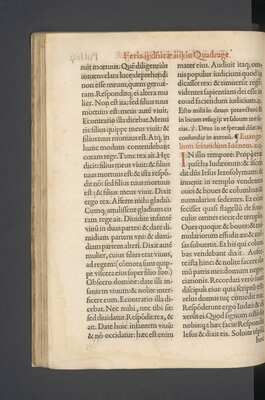 Feria.ij.dñice.iiij.in Quadrage.
nuit mortuus. Quē diligentius
intuens clara luce, deprehendi
non esse meum, quem genue-
ram. Respondit q̃, ei altera mu
lier. Non est ita; sed filius tuus
mortuus est: meus autē viuit.
Econtrario illa dicebat. Menti
ris: filius quippe meus viuit: &
filius tuus mortuus est. Atq̃, in
hunc modum contendebant
coram rege. Tunc rex ait. Hęc
dicit: filius meus viuit: & filius
tuus mortuus est: & ista respō-
dit: nō: sed filius tuus mortuus
est: & filius meus viuit. Dixit
ergo rex. Afferte mihi gladiū.
Cumq̃, attulissent gladium co
ram rege: ait. Diuidite infantē
viuum in duas partes: & date di-
midiam partem vni: & dimi-
diam partem alteri. Dixit autē
mulier, cuius filius erat viuus,
ad regem: (cōmota sunt quip-
pe viscera eius super filio suo.)
Obsecro domine: date illi in-
fantem viuū: & nolite interfi-
cere eum. Econtrario illa di-
cebat. Nec mihi, nec tibi sit:
sed diuidatur. Respōdit rex, &
ait. Date huic infantem viuū:
& nō occidatur: hæc est enim
mater eius. Audiuit itaq̃, om-
nis populus iudicium quod iu
dicasset rex: & timuerunt regē:
videntes sapientiam dei esse in
eo ad faciendum iudicium.
in locum refugij: vt saluum me fa-
cias. ℣. Deus in te speraui: dñe nō
confundar in æternū. ¶ Euange-
lium secundum Ioannem.
IN illo tempore: Prope erat
pascha Iudæorum: & ascē-
dit Iesus Ierosolymam: &
inuenit in templo vendentes
oues & boues & columbas: &
numularios sedentes. Et cum
fecisset quasi flagellū de funi-
culis: omnes eiecit de templo.
Oues quoque & boues: & nu-
mulariorum effudit æs: & men
sas subuertit. Et his qui colum
bas vendebant dixit. Auferte
ista hinc: & nolite facere do-
mū patris mei: domum nego-
ciationis. Recordati sunt vero
discipuli eius quia scriptū est:
zelus domus tuę comedit me.
Respōderunt ergo Iudæi: & di
xerūt ei. Quod signum ostēdis
nobis: q̃ hæc facis? Respōdit
Iesus & dixit eis. Soluite templū